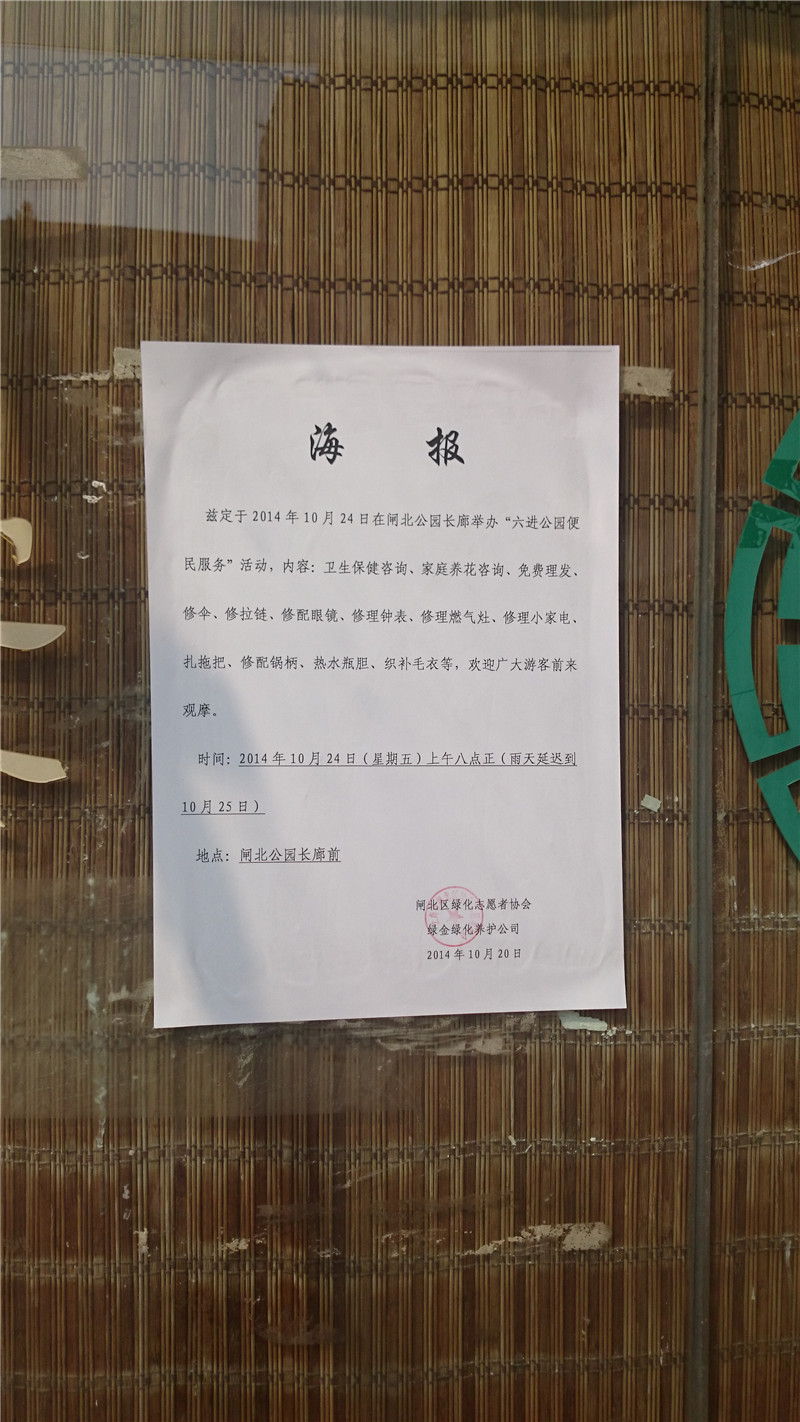 海 报
兹定于 2014 年 10 月 24 日在闸北公园长廊举办“六进公园便
民服务”活动，内容：卫生保健咨询、家庭养花咨询、免费理发、
修伞、修拉链、修配眼镜、修理钟表、修理燃气灶、修理小家电、
扎拖把、修配锅柄、热水瓶胆、织补毛衣等，欢迎广大游客前来
观摩。
时间：2014 年 10 月 24 日（星期五）上午八点正（雨天延迟到
10 月 25 日）
地点：闸北公园长廊前
闸北区绿化志愿者协会
绿金绿化养护公司
2014 年 10 月 20 日